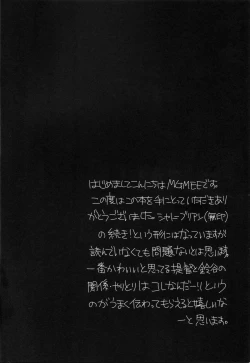 はじめましてこんにちは MGMEEです
この度はこの本を手にとっていただきあり
がとうございました。シャレーブリアン(無印)
の続き!という形にはなっていますが
読んでいなくても問題ないとは思います。
一番かわいいと思ってる提督と鈴谷の
関係・やりとりはコレなんだー!!という
のがうまく伝わってもらえると嬉しいな
ーと思います。